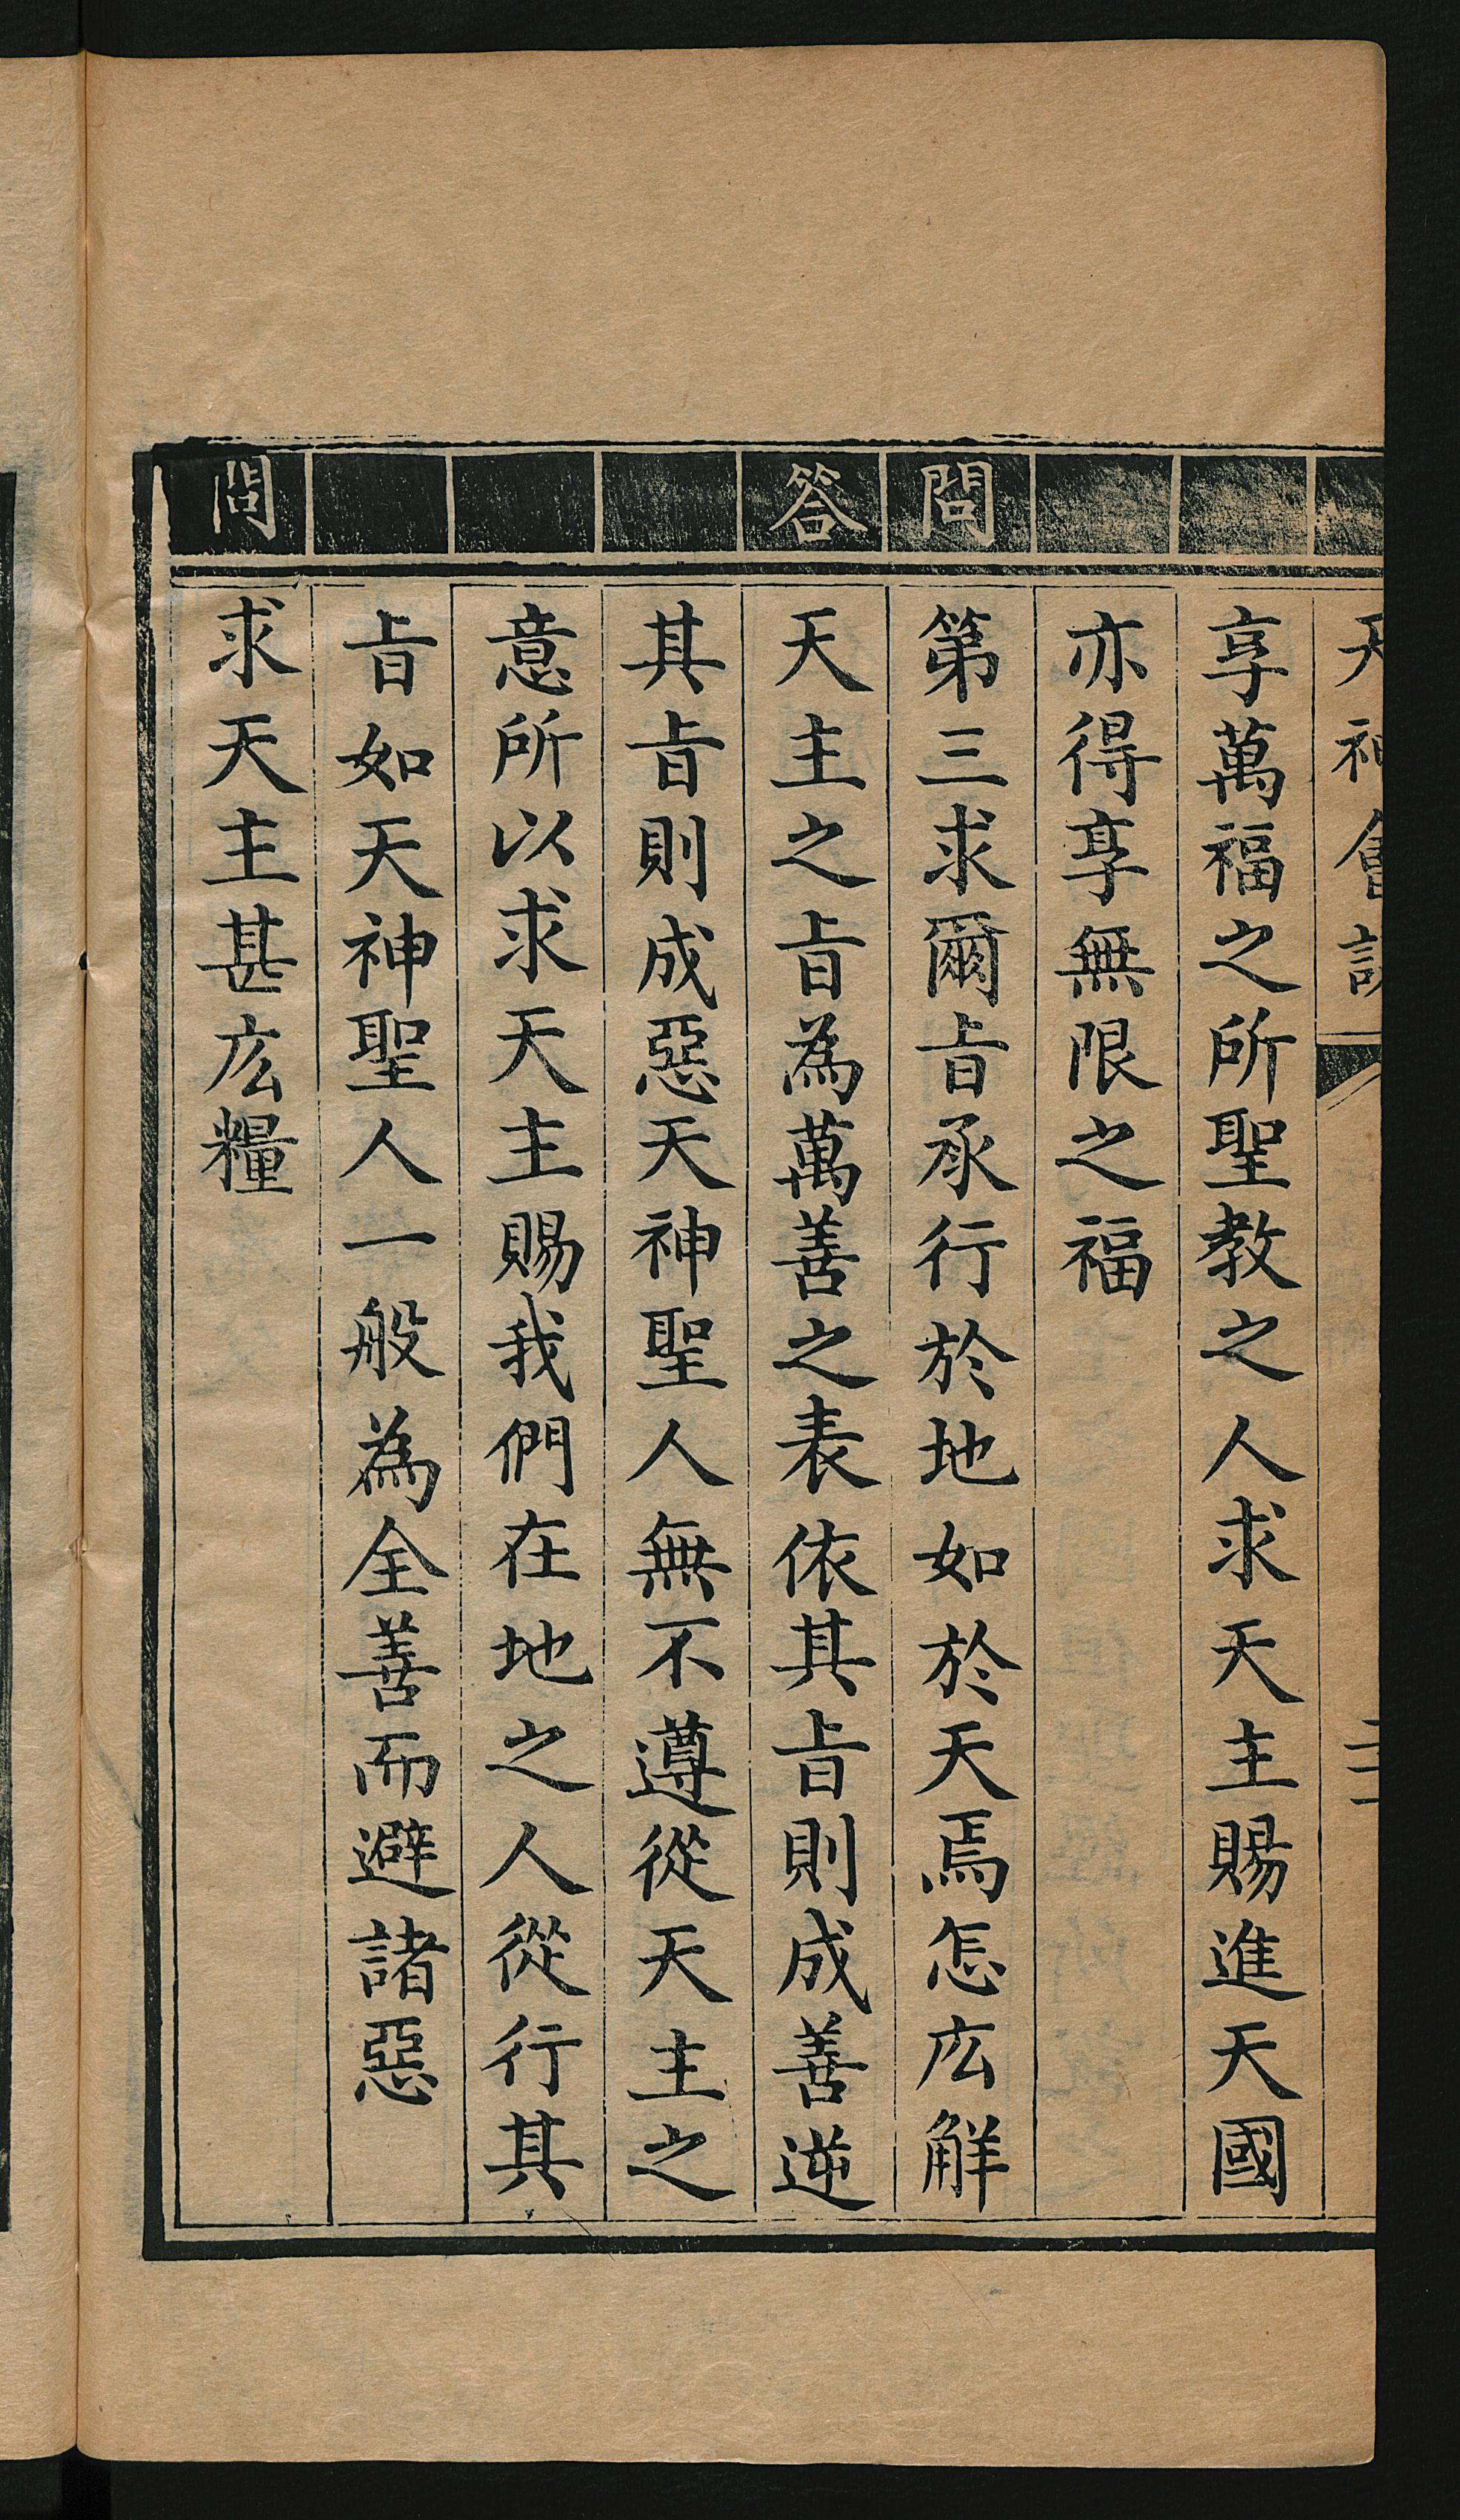 天神會
享萬福之所聖教之人求天主賜進天國
亦得享無限之福
問 第三求爾㫖承行於地如於天焉怎庅觧
答 天主之㫖為萬善之表依其㫖則成善逆
其㫖則成惡天神聖人無不遵從天主之
意所以求天主賜我們在地之人從行其
㫖如天神聖人一般為全善而避諸惡
問 求天主甚庅糧